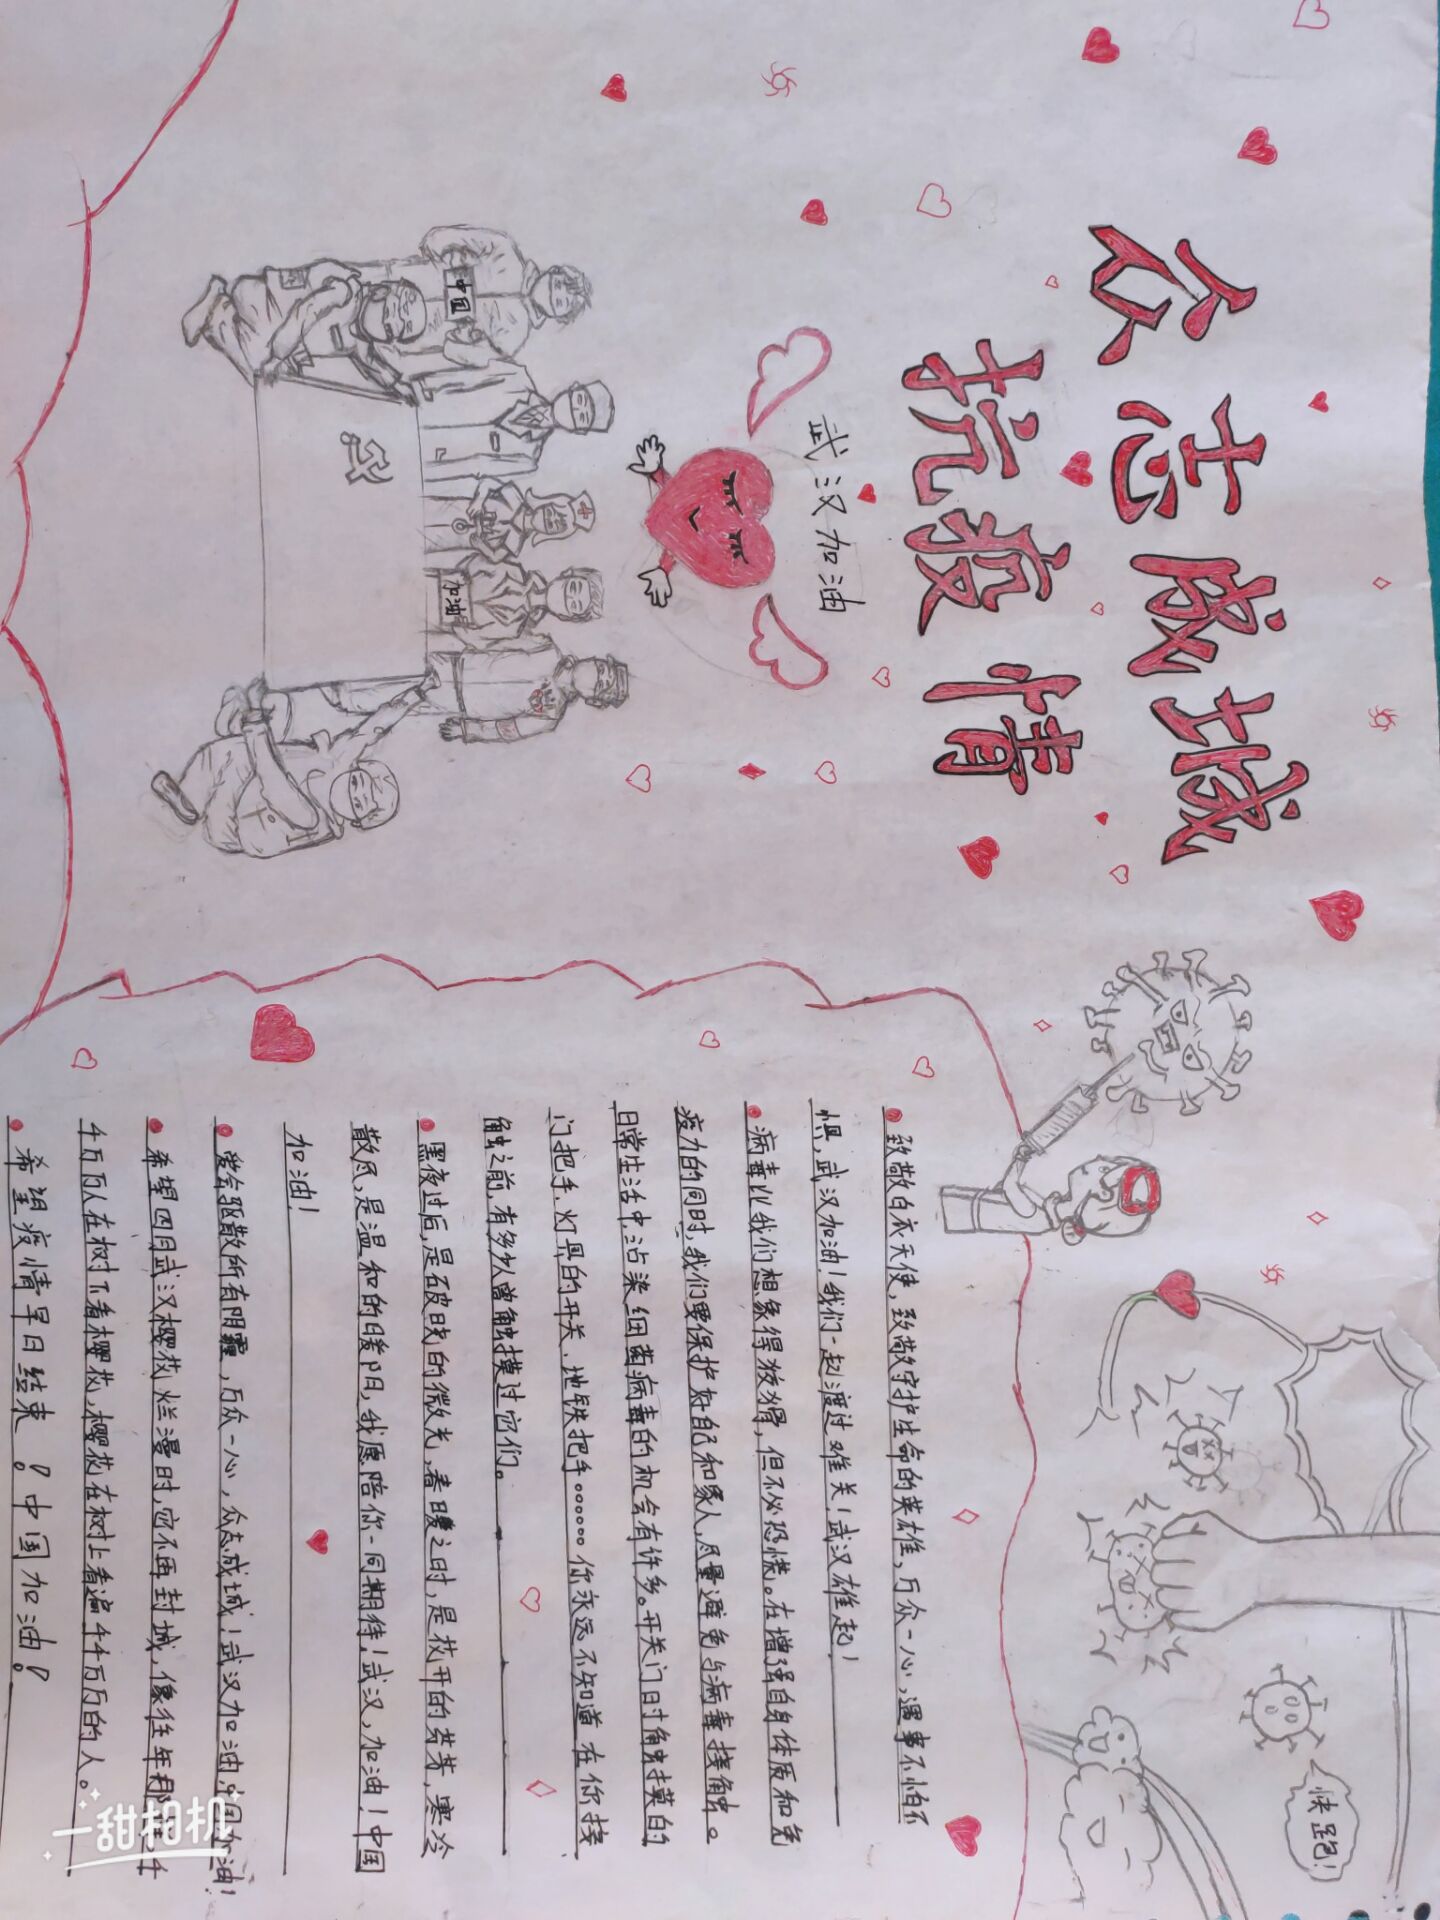 众志成城
抗疫情
武汉加油
中国
加油
快跑!
致敬白衣天使,致敬守护生命的英雄,万众一心,遇事不怕不
惧,武汉加油!我们一起渡过难关!武汉雄起!
病毒比我们想象得狡猾,但不必恐慌。在增强自身体质和免
疫力的同时,我们要保护好自己和家人,尽量避免与病毒接触。
日常生活中沾染细菌病毒的机会有许多。开关门时触摸的
门把手、灯具的开关、地铁把手。。。。。。你永远不知道在你接
触之前,有多少人曾触摸过它们。
黑夜过后,是破晓的微光,春暖之时,是花开的芬芳,寒冷
散尽,是温和的暖阳,我愿陪你一同期待!武汉,加油!中国
加油!
爱会驱散所有阴霾,万众一心,众志成城!武汉加油,中国加油!
希望四月武汉樱花烂漫时,它不再封城,像往年那
4万万人在树下看樱花,樱花在树上看遍44万万的人。
希望疫情早日结束。!中国加油。!
一甜相机